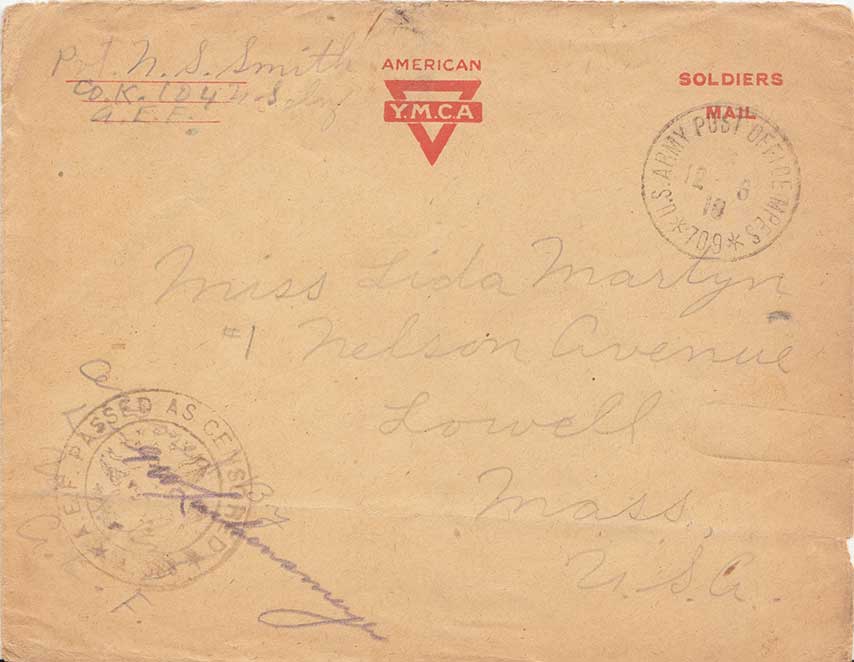 Pvt. N. S. Smith
Co. K. 104 U.S. Inf
A. E. F.
AMERICAN
Y.M.C.A
SOLDIERS
MAIL
U.S. ARMY POST OFFICE MPES * 709 *
12 6
18
Miss Lida Martyn
#1 Nelson Avenue
Lowell
Mass.
U.S.A.
A.E.F. PASSED AS CENSORED